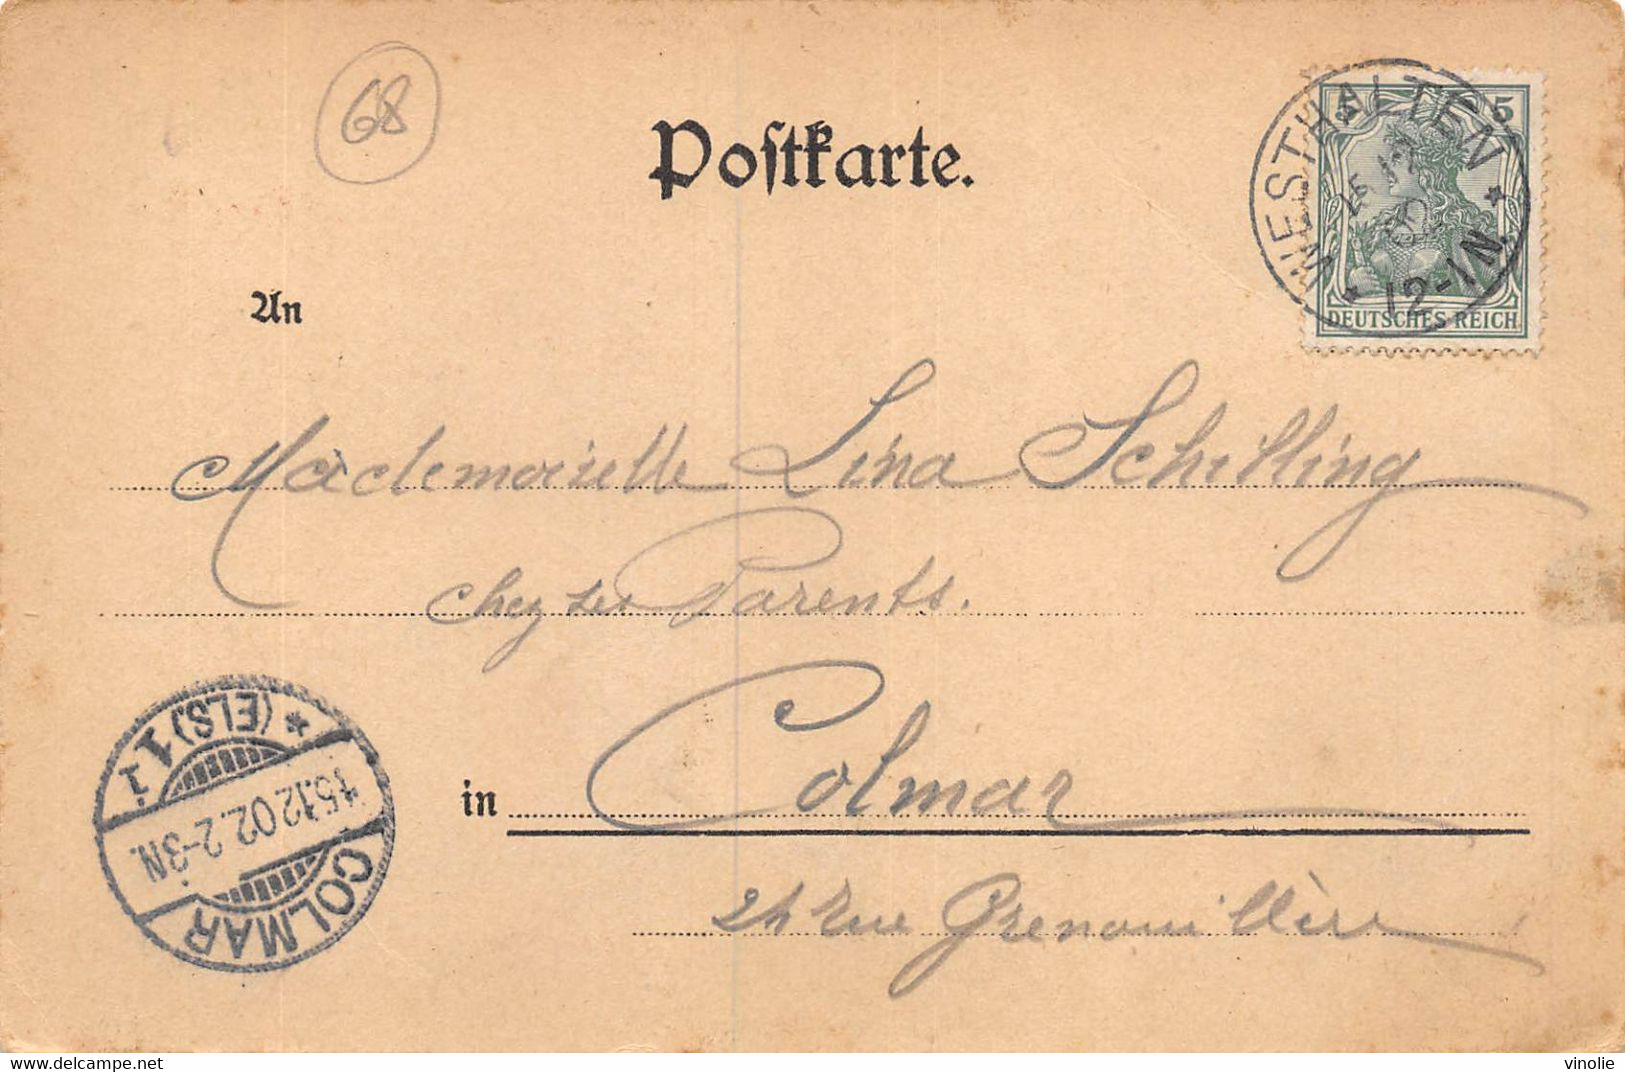 68
Postkarte.
WESTHALTEN
12-1N
5 5
DEUTSCHES REICH
An
Mademoiselle Lina Schilling
chez ses Parents.
in Colmar
24 Rue Grenouillère
COLMAR
15.12 02. 2-3N.
(ELS) 1
delcampe.net
vinolie